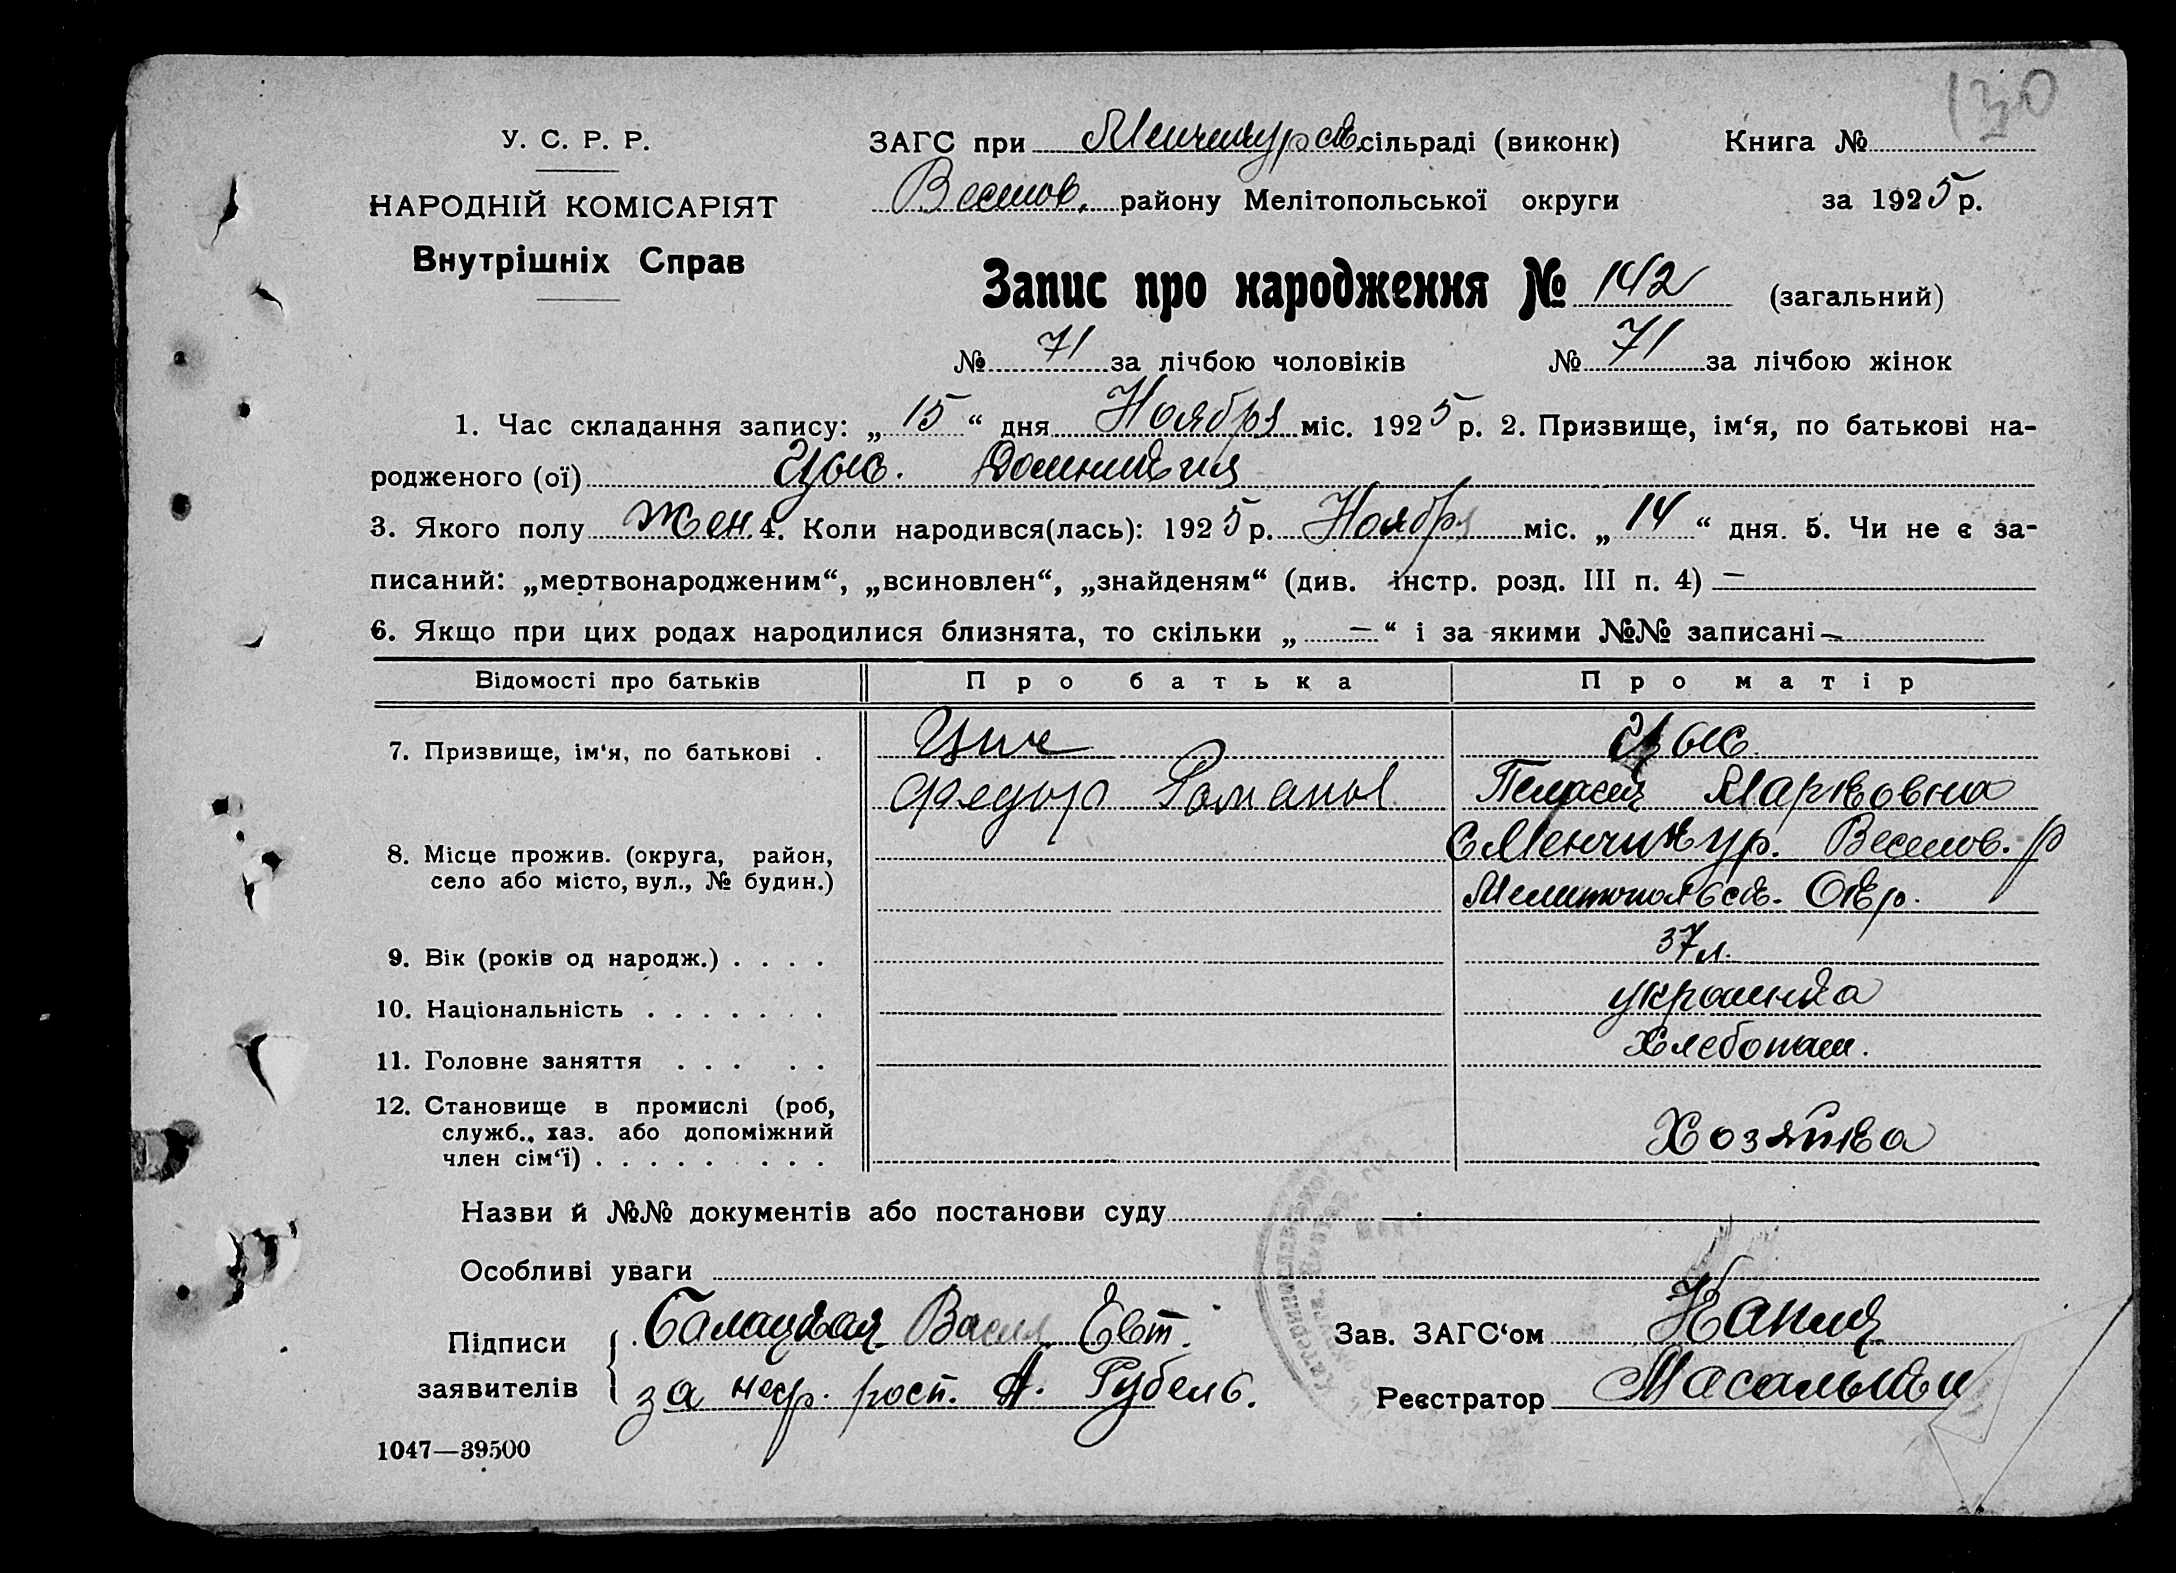 130
У. С. Р. Р.
НАРОДНІЙ КОМІСАРІЯТ
Внутрішніх Справ
ЗАГС при Менчикурск. сільраді (виконк) Книга №
Веселов. району Мелітопольської округи за 1925 р.
Запис про народження № 142 (загальний)
№ 71 за лічбою чоловіків № 71 за лічбою жінок
1. Час складання запису: „ 15 “ дня Ноября міс. 1925 р. 2. Призвище, ім‘я, по батькові на-
родженого (ої) Цыс.
3. Якого полу жен. 4. Коли народився(лась): 1925 р. Ноября міс. „ 14 “ дня. 5. Чи не є за-
писаний: „мертвонародженим“, „всиновлен“, „знайденям“ (див. інстр. розд. III п. 4) —
6. Якщо при цих родах народилися близнята, то скільки „ — “ і за якими №№ записані —
Відомості про батьків Про батька Про матір
7. Призвище, ім‘я, по батькові . Цыс
Федор Роман Марковна
8. Місце прожив. (округа, район, село або місто, вул., № будин.) С Менчикур. Веселов. р
Мелитопольск. Окр.
9. Вік (років од народж.) . . . . 37 л.
10. Національність . . . . . . . украинка
11. Головне заняття . . . . . Хлебопаш.
12. Становище в промислі (роб, служб., хаз. або допоміжний член сім‘ї) . . . . . . . . . Хозяйка
Назви й №№ документів або постанови суду
Особливі уваги
Підписи заявителів Балацкая Васил Евт.
за негр. росп. А. Рубель.
Зав. ЗАГС‘ом
Реєстратор
1047—39500